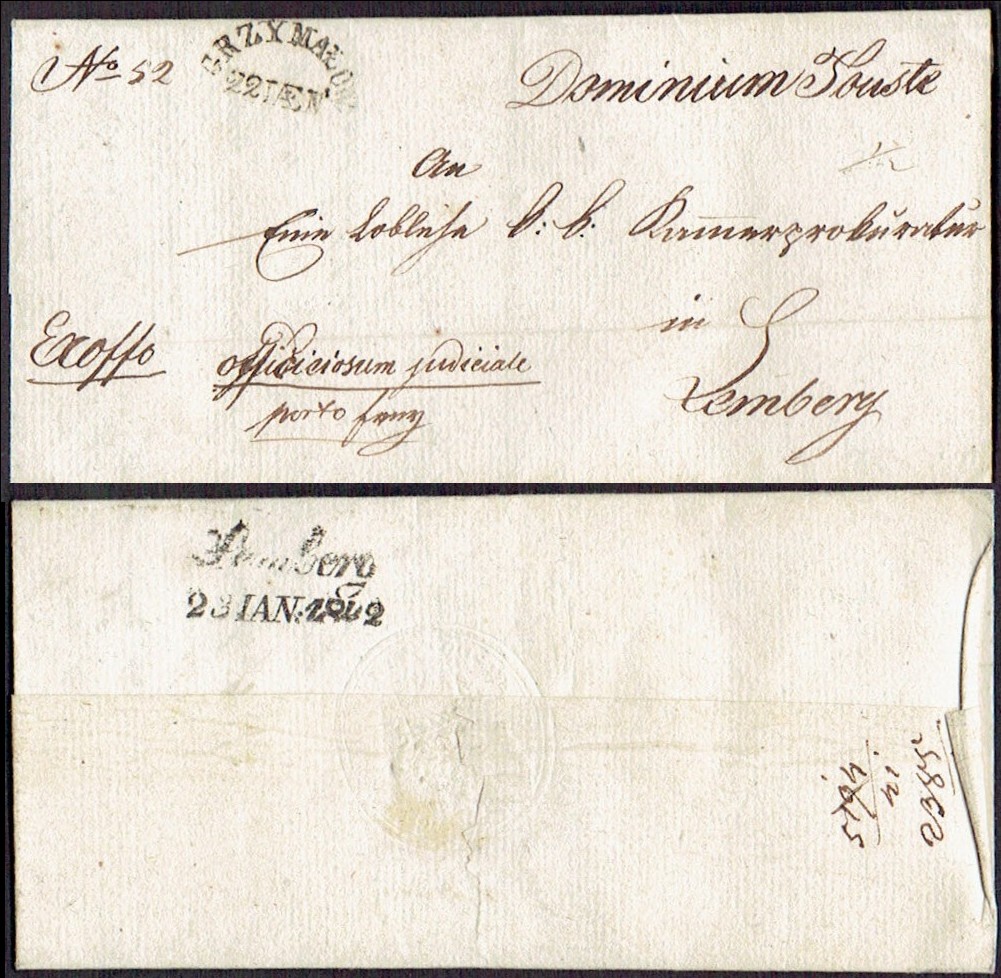 No 52
GRZYMAŁOW
22 IÆN
Dominium Touste
An
Eine Lobliche k: k: Kam̅erprokuratur
in
Lemberg
Exoffo
officiosum judiciale
porto frey
Lemberg
23 IAN: 1842